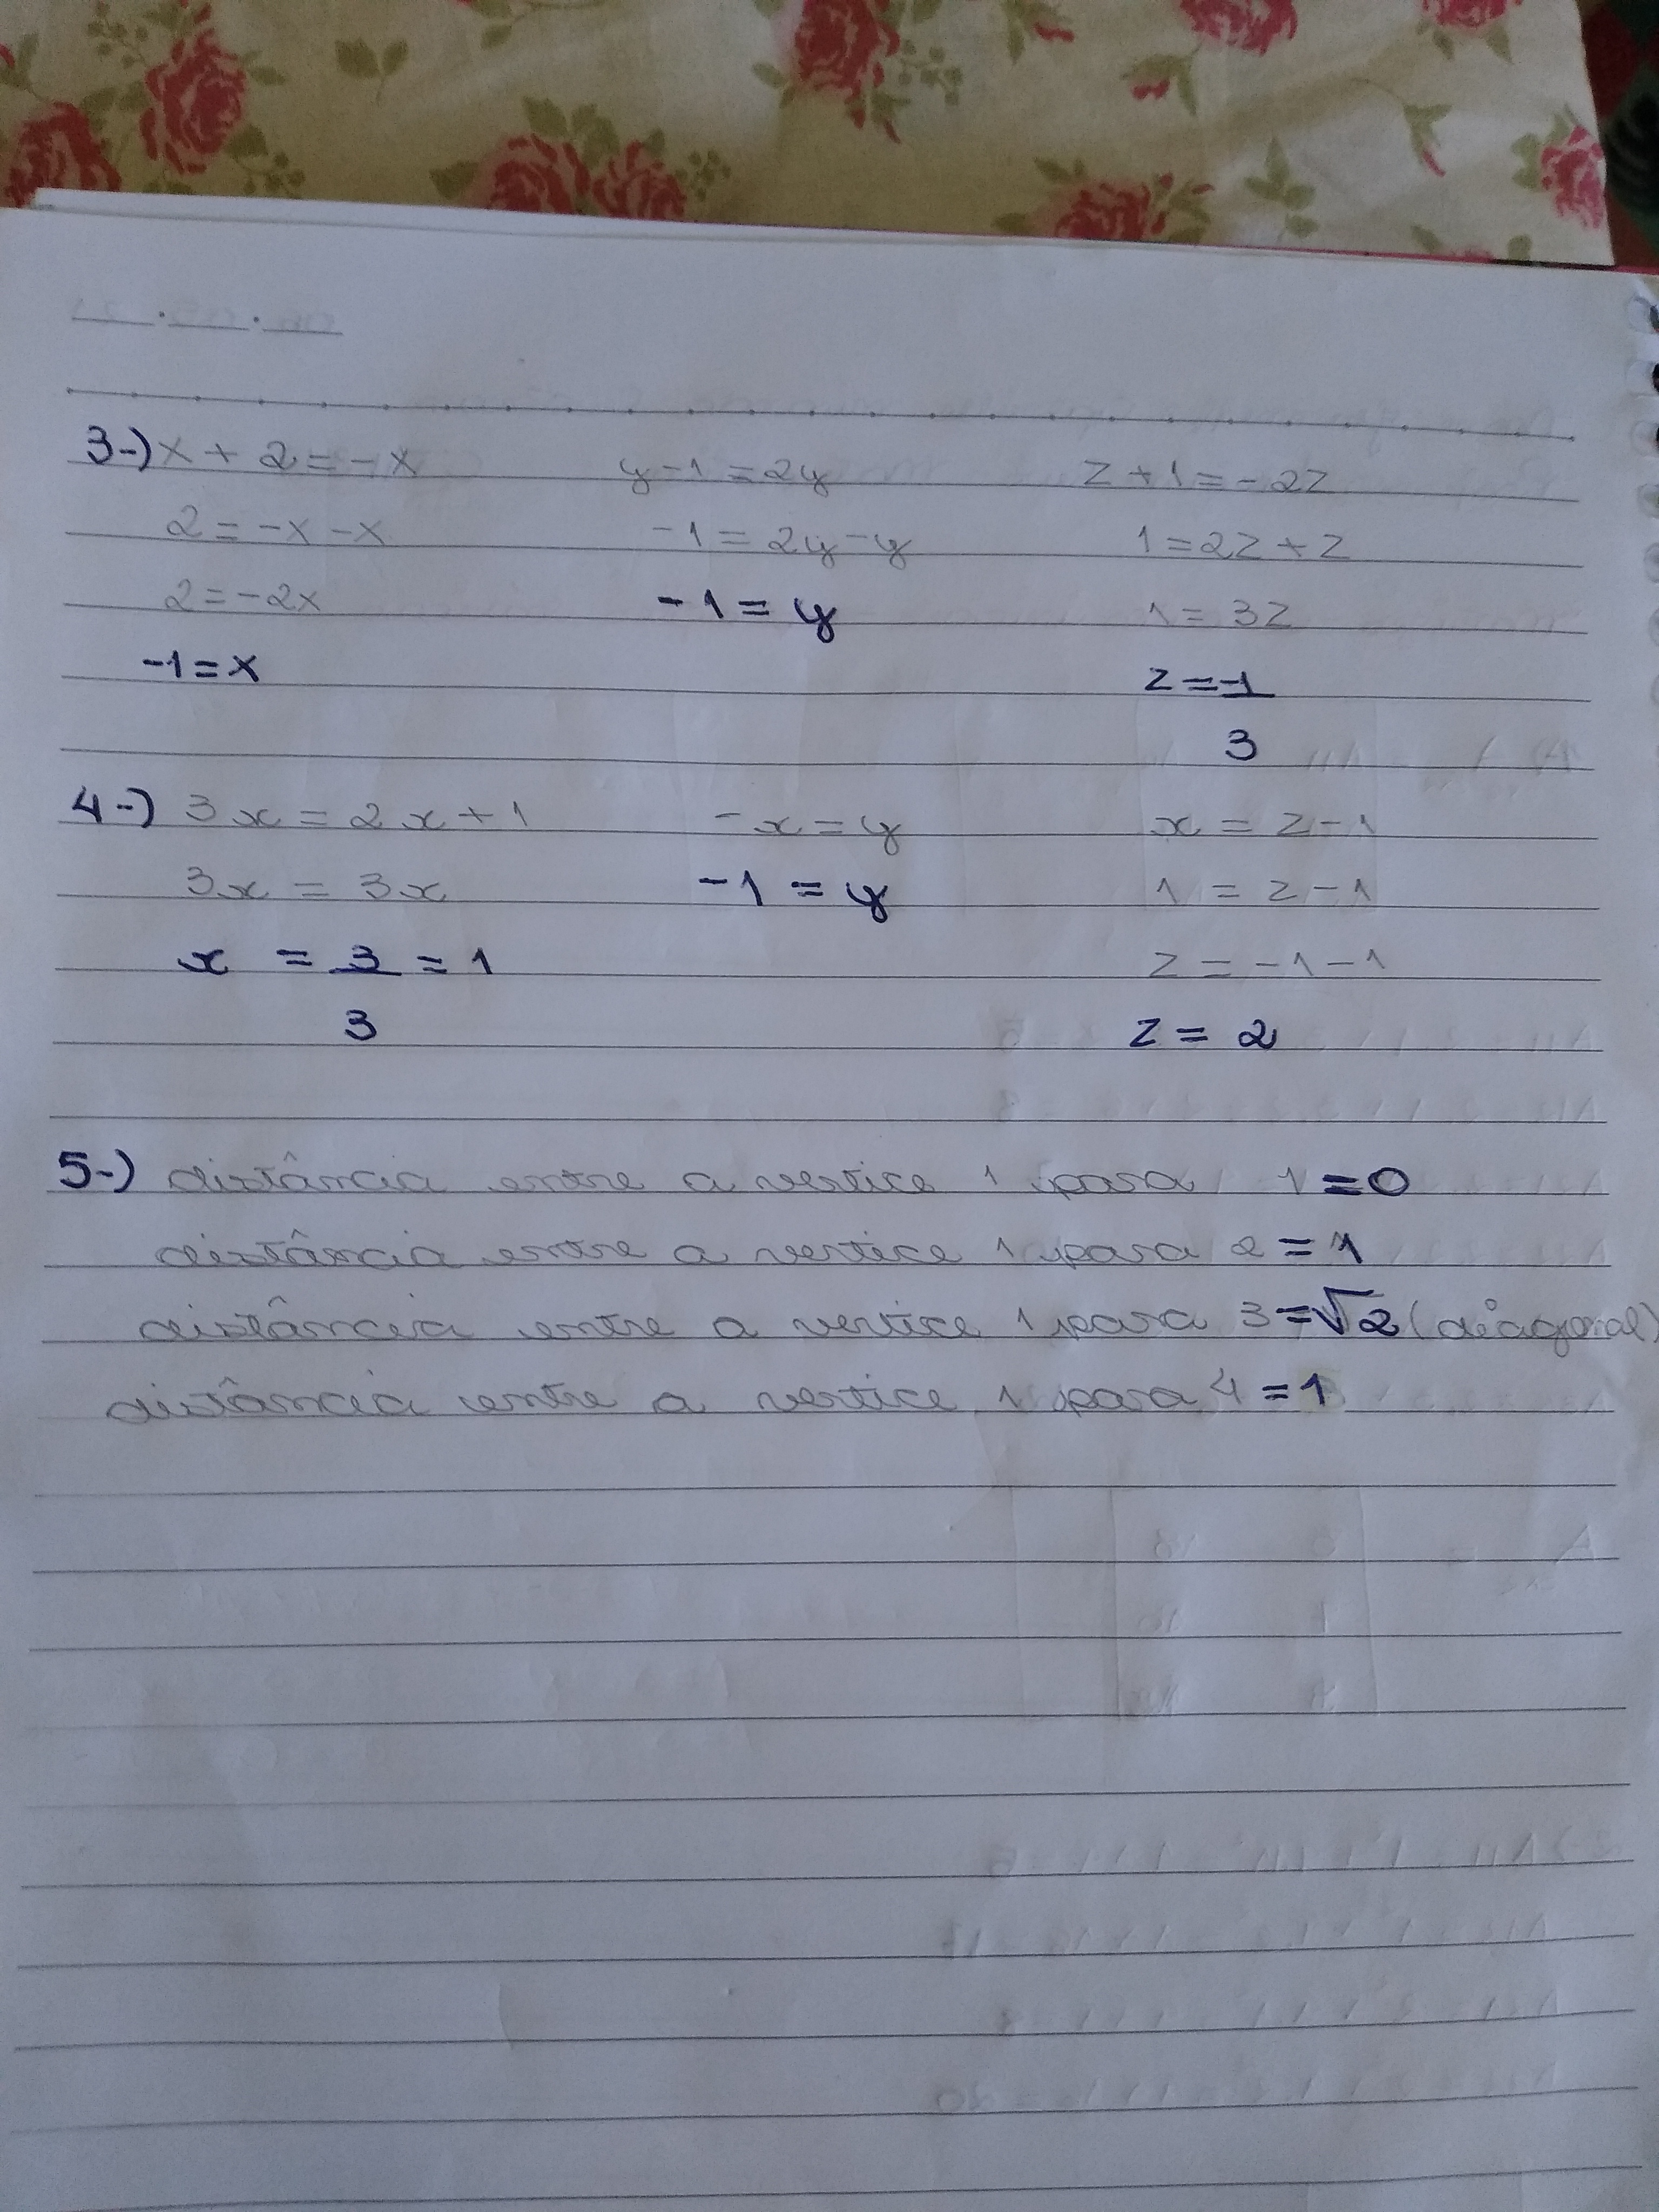 3-) x + 2 = -x y - 1 = 2y z + 1 = -2z
2 = -x - x -1 = 2y - y 1 = 2z + z
2 = -2x -1 = y 1 = 3z
-1 = x z = -1
3
4-) 3x = 2x + 1 -x = y x = z - 1
3x = 3x -1 = y 1 = z - 1
x = 3 = 1 z = -1 - 1
3 z = 2
5-) distância entre a vertice 1 para 1 = 0
distância entre a vertice 1 para 2 = 1
distância entre a vertice 1 para 3 = √2 (diagonal)
distância entre a vertice 1 para 4 = 1